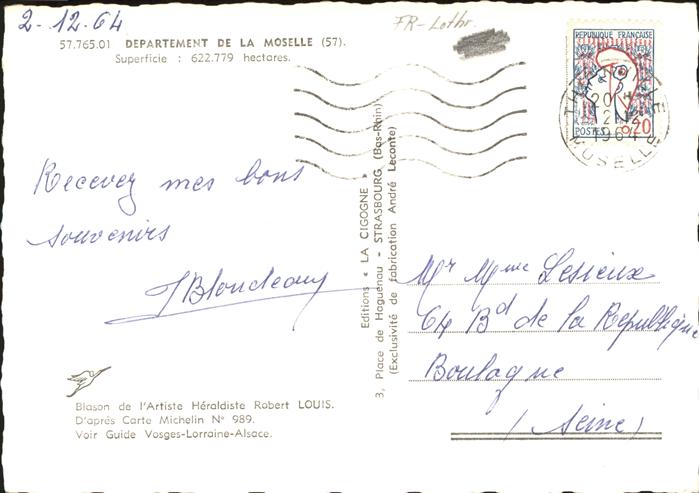 2-12.64
FR-Lothr.
57.765.01 DEPARTEMENT DE LA MOSELLE (57).
Superficie : 622.779 hectares.
REPUBLIQUE FRANÇAISE
POSTES 0,20
THIONVILLE
20 H
2-12
1964
MOSELLE
Recevez mes bons
souvenirs
JBlondeau
Editions « LA CIGOGNE »
3, Place de Haguenau - STRASBOURG (Bas-Rhin)
(Exclusivité de fabrication André Leconte)
Mr Mme Lesieux
64 Bd de la République
Boulogne
(Seine)
Blason de l'Artiste Héraldiste Robert LOUIS.
D'après Carte Michelin N° 989.
Voir Guide Vosges-Lorraine-Alsace.